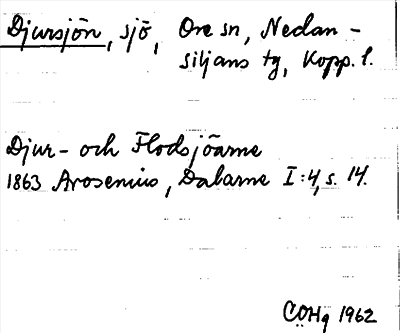 Djursjön, sjö, Ore sn, Nedan-
siljans tg, Kopp. l.
Djur- och Flodsjöarne
1863 Arosenius, Dalarne I:4, s. 14.
COHg 1962